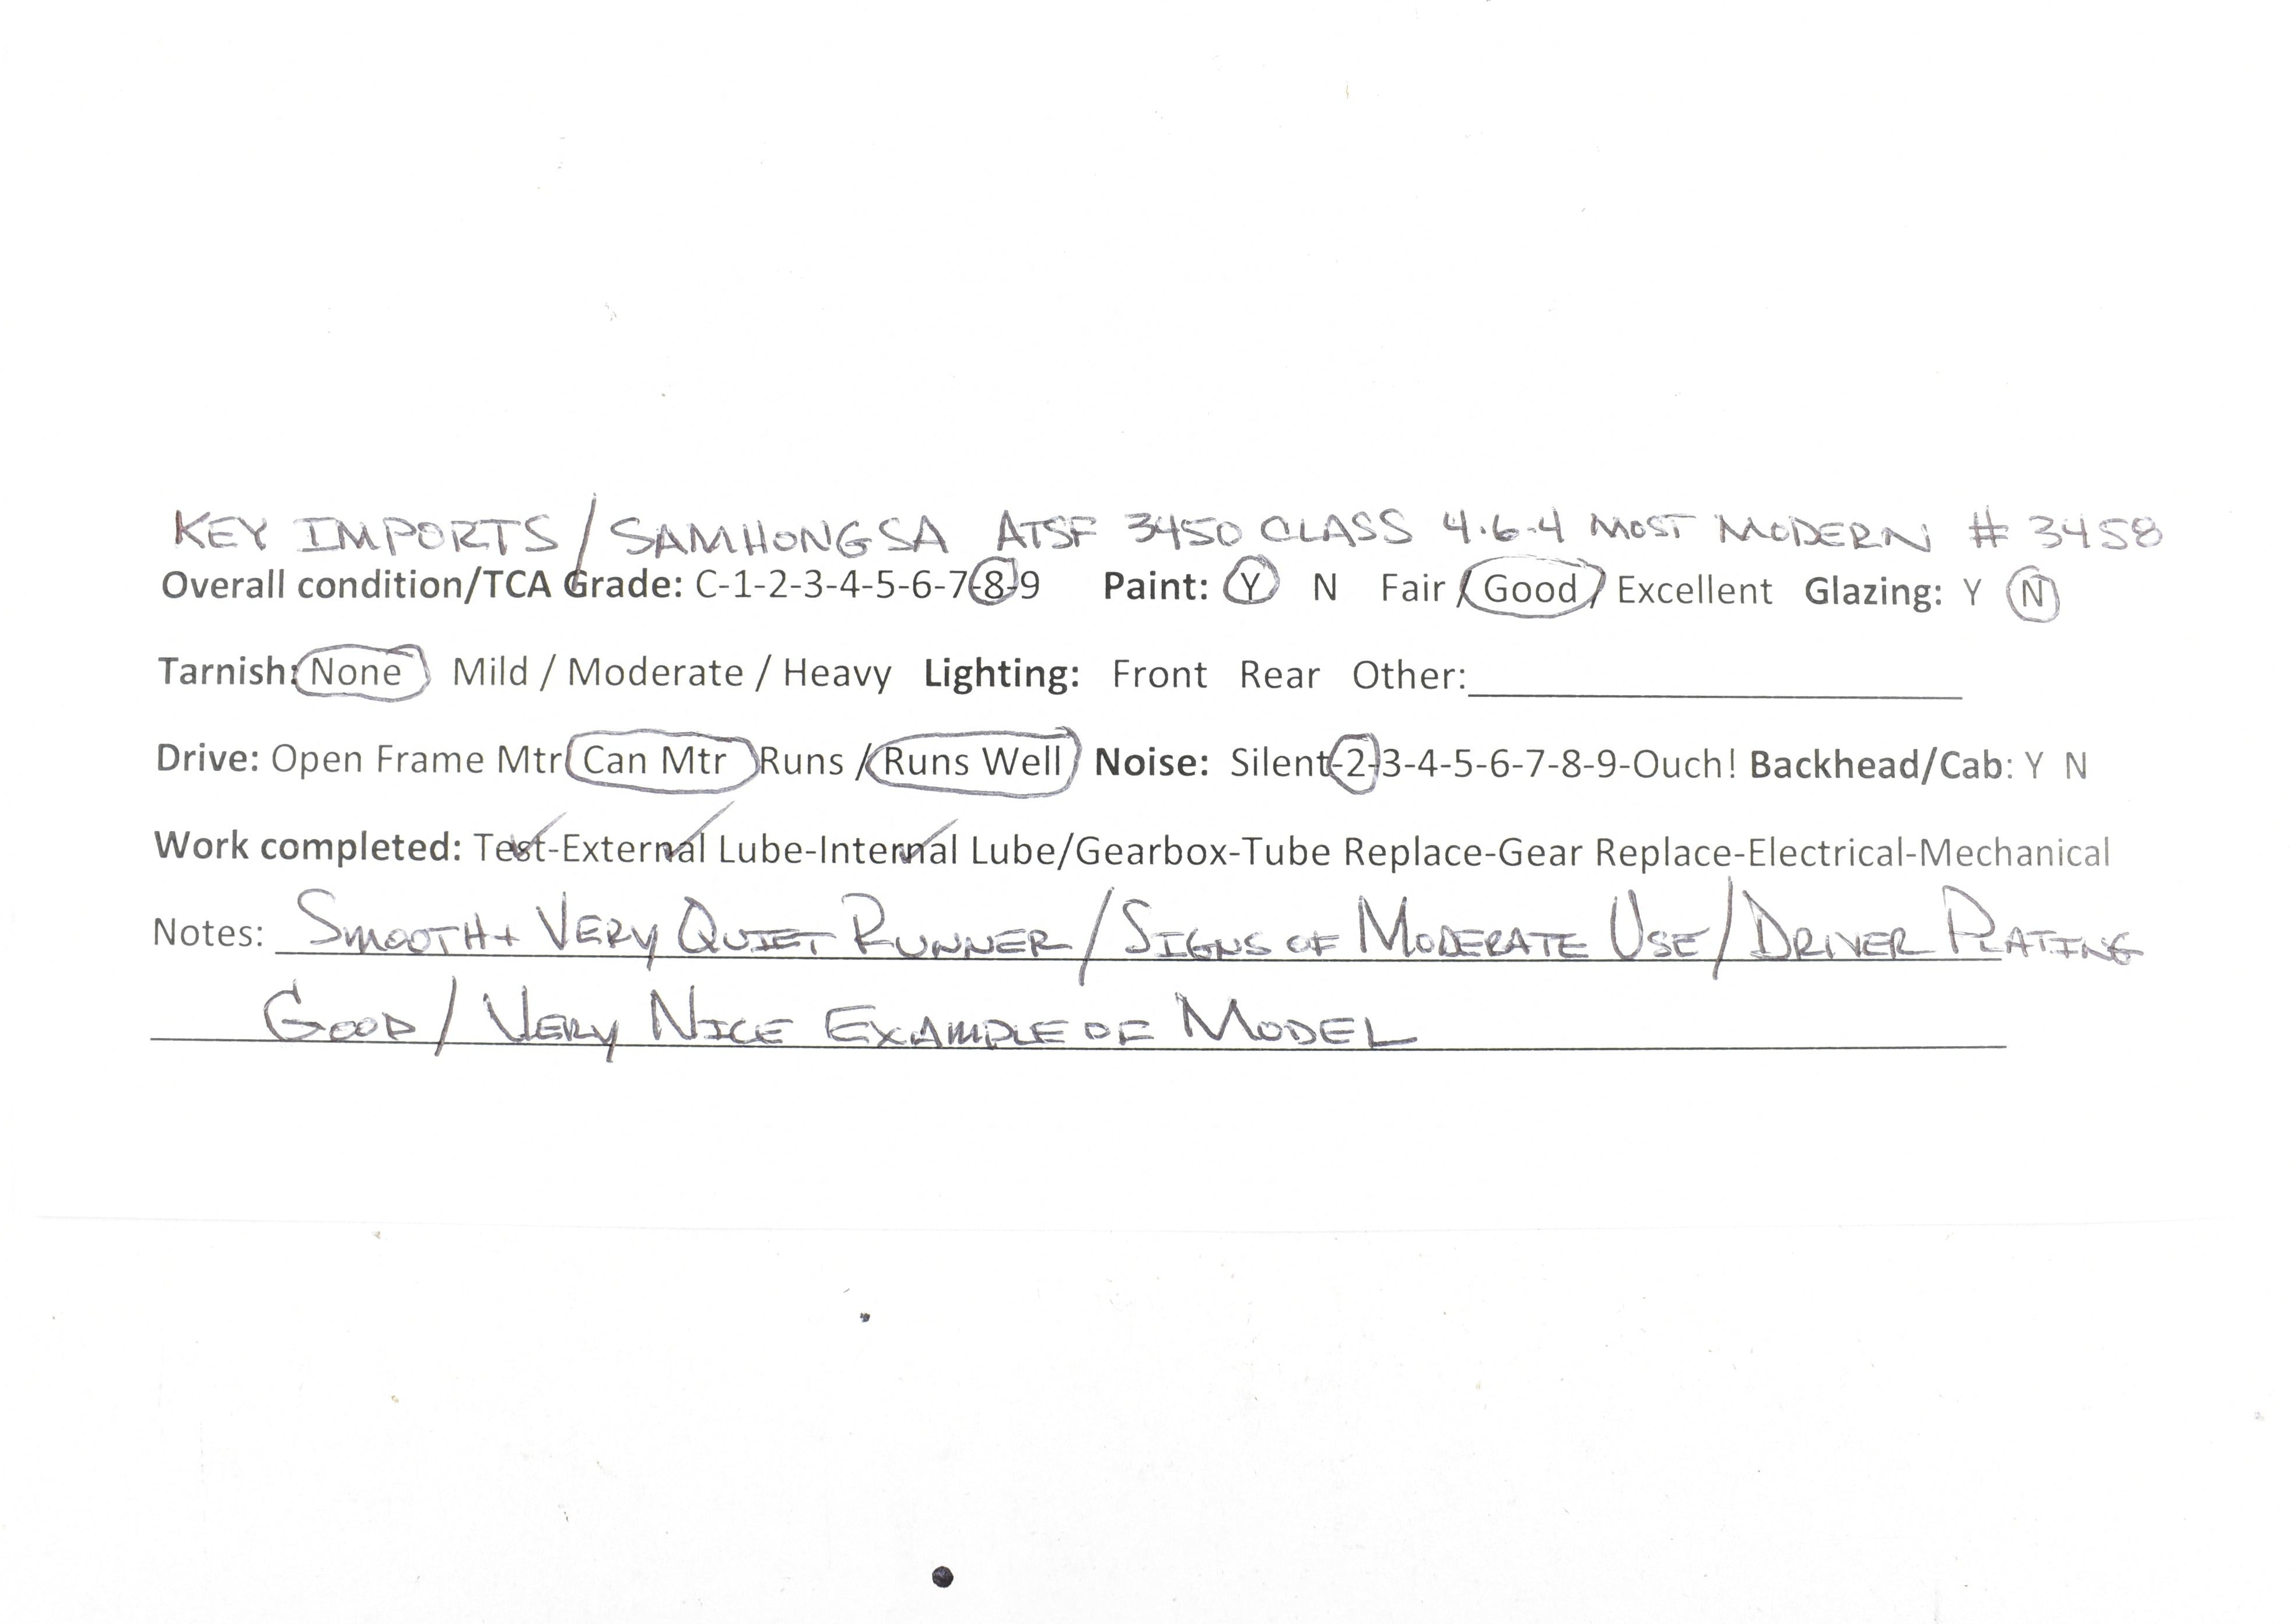 KEY IMPORTS/SAMHONGSA ATSF 3450 CLASS 4-6-4 MOST MODERN # 3458
Overall condition/TCA Grade: C-1-2-3-4-5-6-7-8-9 Paint: Y N Fair / Good / Excellent Glazing: Y N
Tarnish: None Mild / Moderate / Heavy Lighting: Front Rear Other:
Drive: Open Frame Mtr Can Mtr Runs / Runs Well Noise: Silent-2-3-4-5-6-7-8-9-Ouch! Backhead/Cab: Y N
Work completed: Test-External Lube-Internal Lube/Gearbox-Tube Replace-Gear Replace-Electrical-Mechanical
Notes: SMOOTH + VERY QUIET RUNNER/SIGNS OF MODERATE USE/DRIVER PLATING
GOOD/VERY NICE EXAMPLE OF MODEL